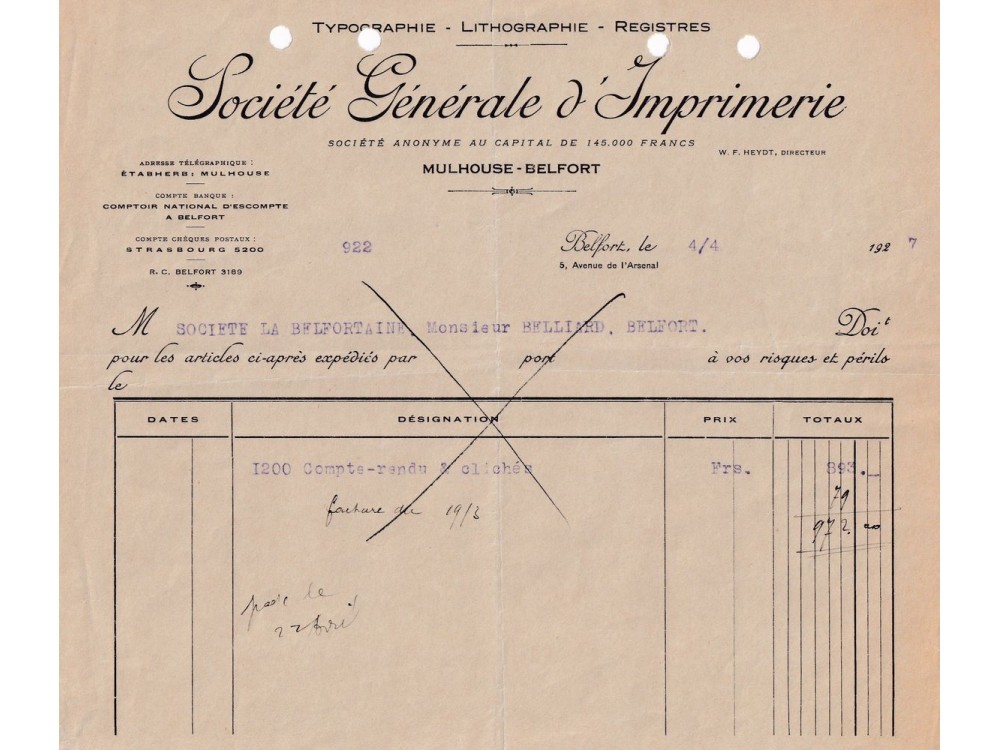 TYPOGRAPHIE - LITHOGRAPHIE - REGISTRES
Société Générale d'Imprimerie
SOCIÉTÉ ANONYME AU CAPITAL DE 145.000 FRANCS
W. F. HEYDT, DIRECTEUR
MULHOUSE - BELFORT
ADRESSE TÉLÉGRAPHIQUE :
ÉTABHERB: MULHOUSE
COMPTE BANQUE :
COMPTOIR NATIONAL D'ESCOMPTE
A BELFORT
COMPTE CHÈQUES POSTAUX :
STRASBOURG 5200
R. C. BELFORT 3189
922
Belfort, le 4/4 1927
5, Avenue de l'Arsenal
M SOCIETE LA BELFORTAINE, Monsieur BELLIARD, BELFORT. Doit
pour les articles ci-après expédiés par port à vos risques et périls
le
DATES DÉSIGNATION PRIX TOTAUX
1200 Compte-rendu & clichés Frs. 893.__
79
facture du 19/3
972.00
payé le
22 Avril